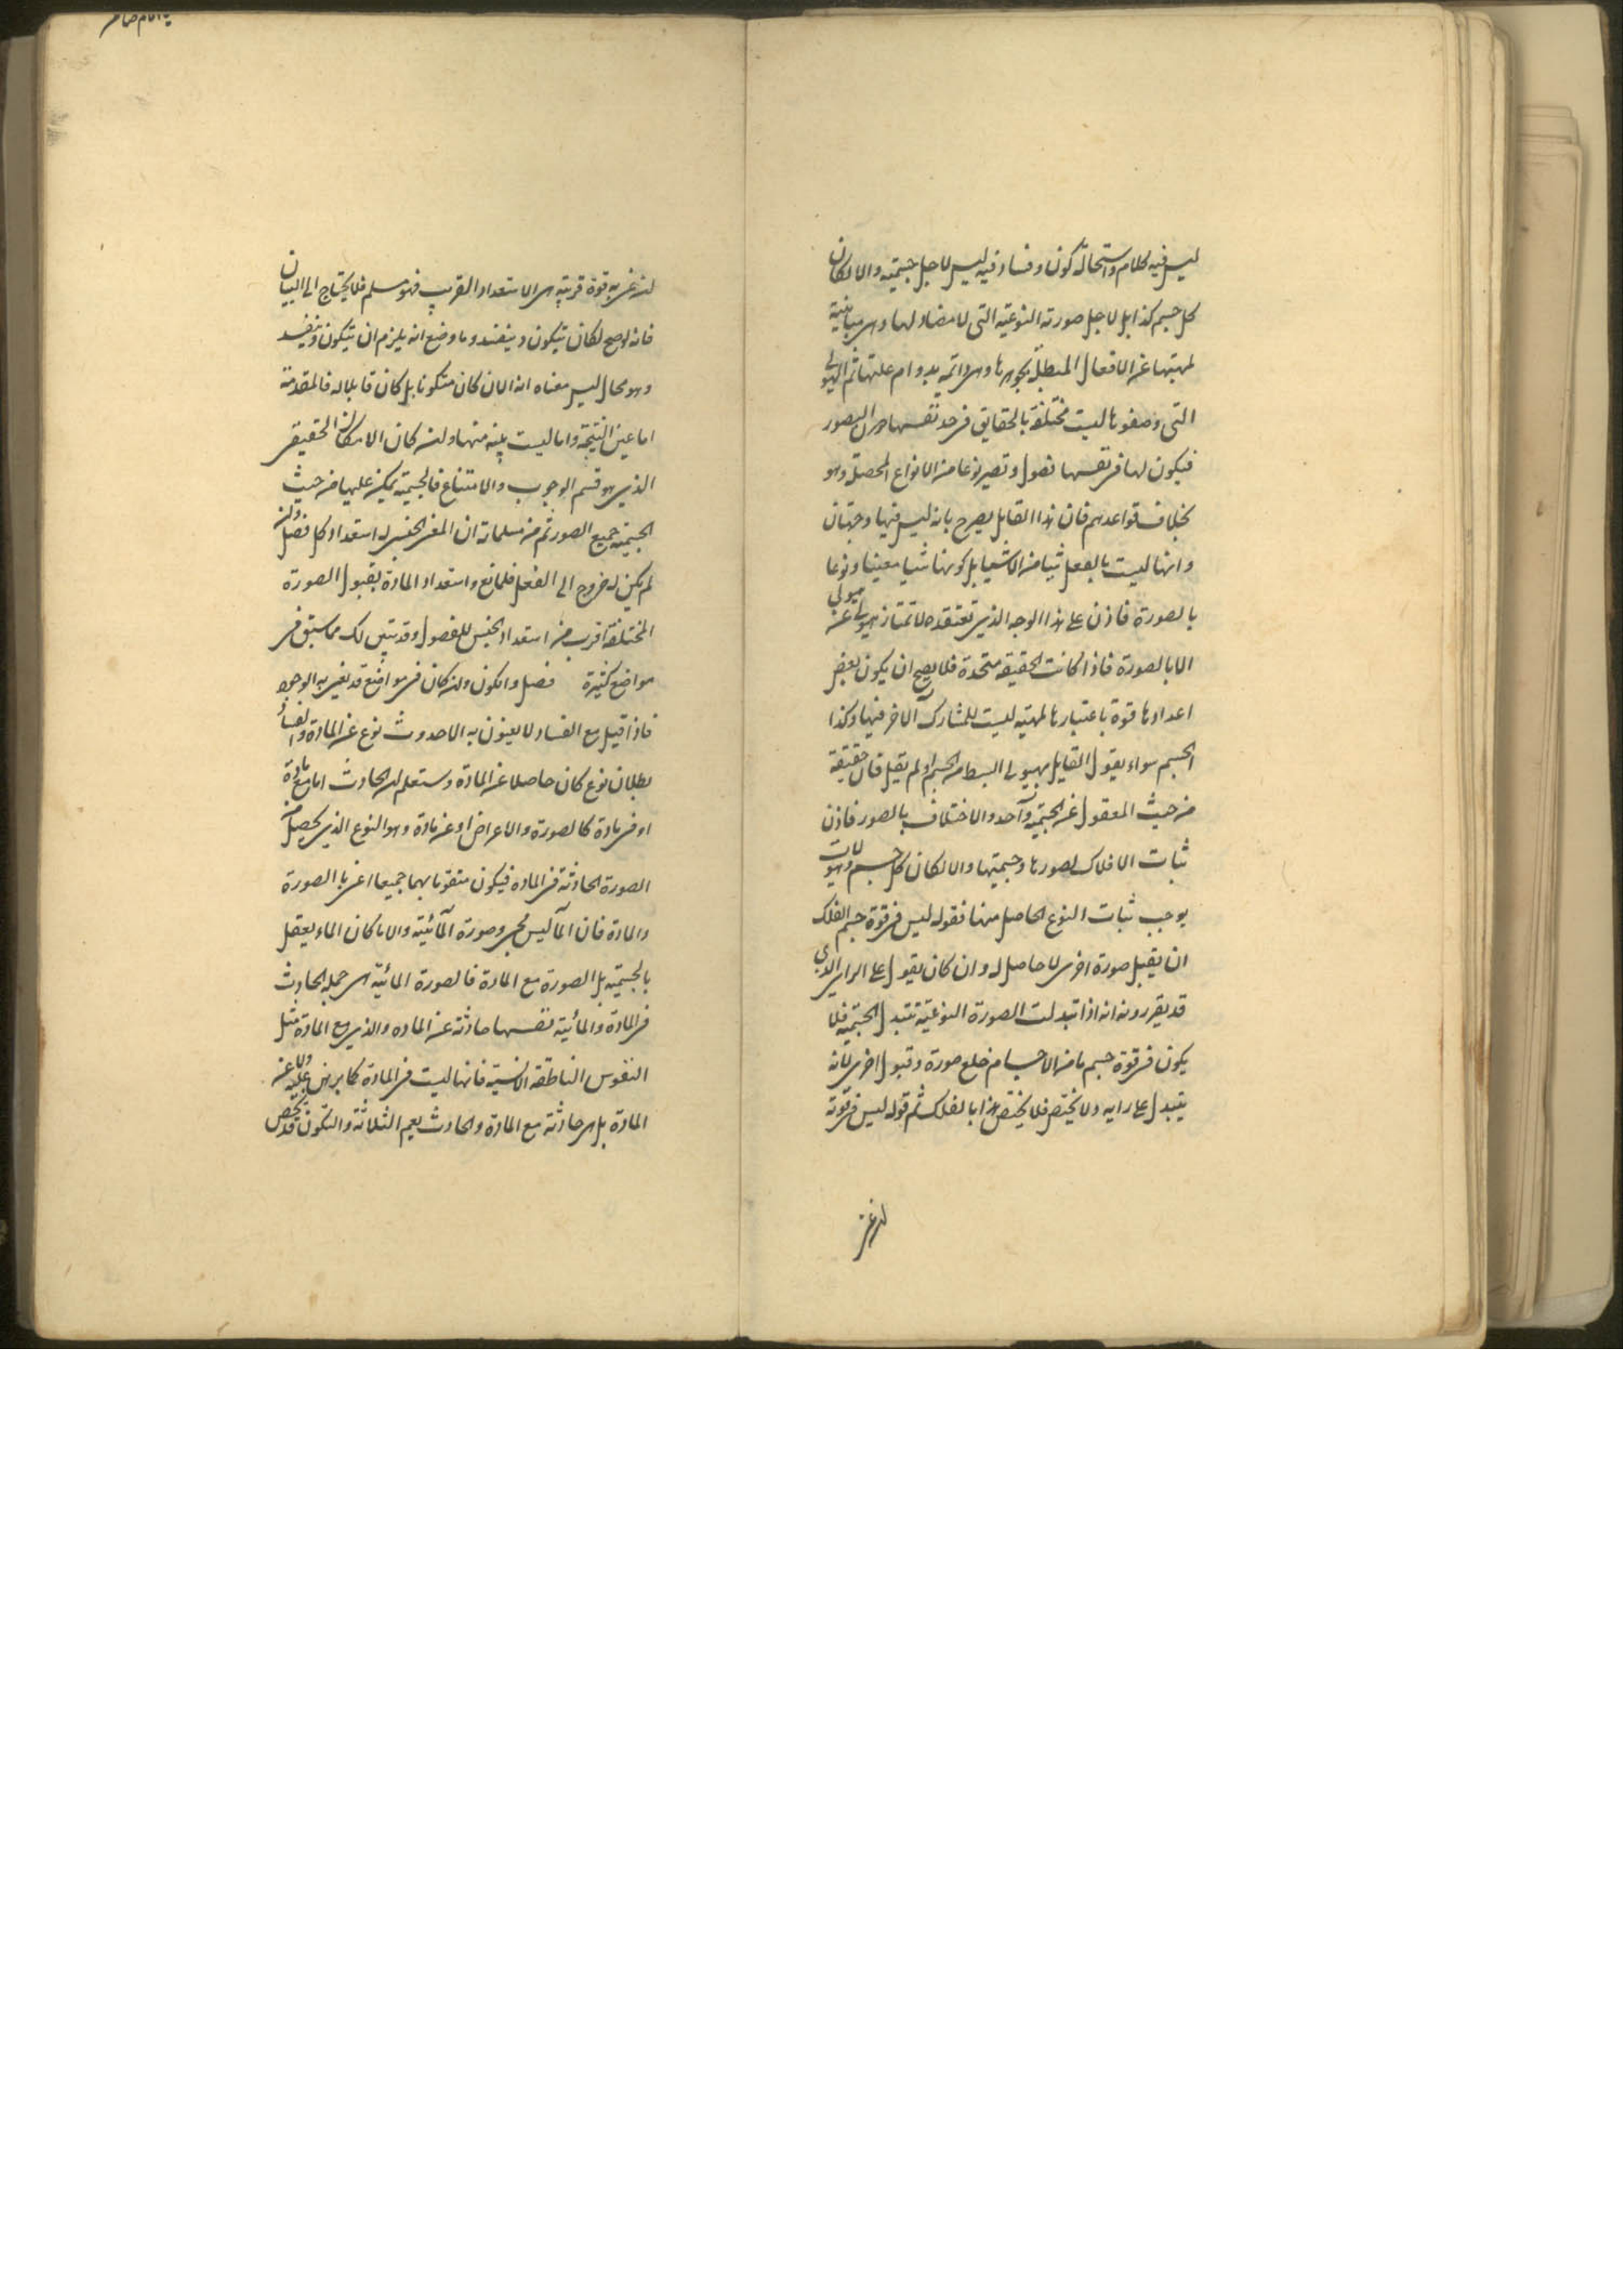 ليس فيه كلام واستحالة كون وفساد فيه ليس لاجل جسميته والا لكان
كل جسم كذا بل لاجل صورته النوعية التى لا مضاد لها وهى مباينة
لمهيتها عن الافعال المبطلة بجوهرها وهى دائمة بدوام علتها ثم الهيولى
التى وصفوها ليست مختلفة بالحقايق فى حد نفسها دون الصور
فيكون لها فى نفسها فصول وتصير نوعا من الانواع المحصلة وهو
بخلاف قواعدهم فان هذا القايل يصرح بانه ليس فيها وجهتان
وانها ليست بالفعل شيا من الاشيا بل كونها شيا معينا ونوعا
بالصورة فاذن على هذا الوجه الذى تعتقده لا تمتاز هيولى عن هيولى
الا بالصورة فاذا كانت الحقيقة متحدة فلا يصح ان يكون لبعض
اعدادها قوة باعتبارها لمهيته ليست للمشارك الآخر فيها وكذا
الجسم سواء يقول القايل بهيولى ابسط من الجسم او لم يقل فان حقيقة
من حيث المعقول عن الجسمية واحد والاختلاف بالصور فاذن
ثبات الافلاك لصورها وجسميتها والا لكان كل جسم
يوجب ثبات النوع الحاصل منها فقوله ليس فى قوة جسم الفلك
ان يقبل صورة اخرى لا حاصل له وان كان يقول على الراى الذى
قد يقررونه انه اذا تبدلت الصورة النوعية تتبدل الجسمية فلا
يكون فى قوة جسم ما من الاجسام خلع صورة وقبول اخرى لانه
يتبدل على رايه ولا يختص فلا يختص هذا بالفلك ثم قوله ليس فى قوته
ان عنى
ان عنى به قوة قريبة هى الاستعداد القريب فهو مسلم فلا يحتاج الى البيان
فانه لو صح لكان يتكون وينفسد وما وضع انه يلزم ان يتكون وينفسد
وهو محال ليس معناه انه الان كان متكونا بل كان قابلا له فالمقدمة
اما عين النتيجة واما ليست بينة منها وان كان الامكان الحقيقى
الذى هو قسم الوجوب والامتناع فالجسمية يمكن عليها من حيث
الجسمية جميع الصور ثم من مسلماته ان المعنى الجنسى له استعداد كل فصل وان
لم يكن له خروج الى الفعل فلمانع واستعداد المادة بقبول الصورة
المختلفة اقرب من استعداد الجنس للفصول وقد تبين لك مما سبق فى
مواضع كثيرة فصل والكون وان كان فى مواضع قد يعنى به الوجود
فاذا قيل مع الفساد لا يعنون به الا حدوث نوع عن المادة والفساد
بطلان نوع كان حاصلا عن المادة وستعلم ان الحادث اما مع مادة
او فى مادة كالصورة والاعراض او عن مادة وهو النوع الذى يحصل من
الصورة الحادثة فى المادة فيكون متقوما بهما جميعا اعنى بالصورة
والمادة فان الماء ليس مجرد صورة المائية والا ما كان الماء يعقل
بالجسمية بل الصورة مع المادة فالصورة المائية هى جملة الحادث
فى المادة والمائية نفسها حادثة عن المادة والذى مع المادة مثل
النفوس الناطقة الانسية فانها ليست فى المادة كما برهن عليه ولا عن
المادة بل هى حادثة مع المادة والحادث يعم الثلاثة والتكون قد يخص